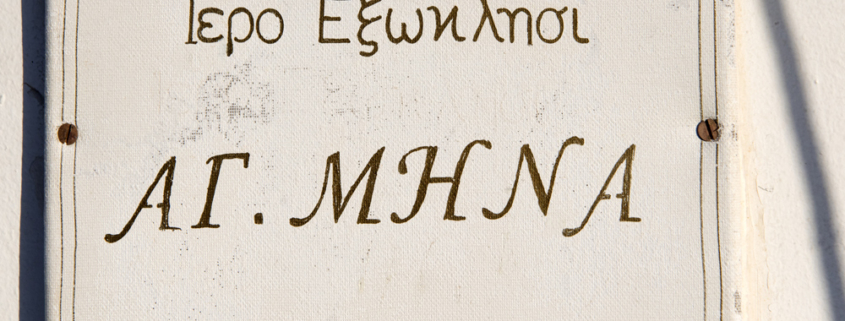 Ιερο Εξωκλησι
ΑΓ. ΜΗΝΑ